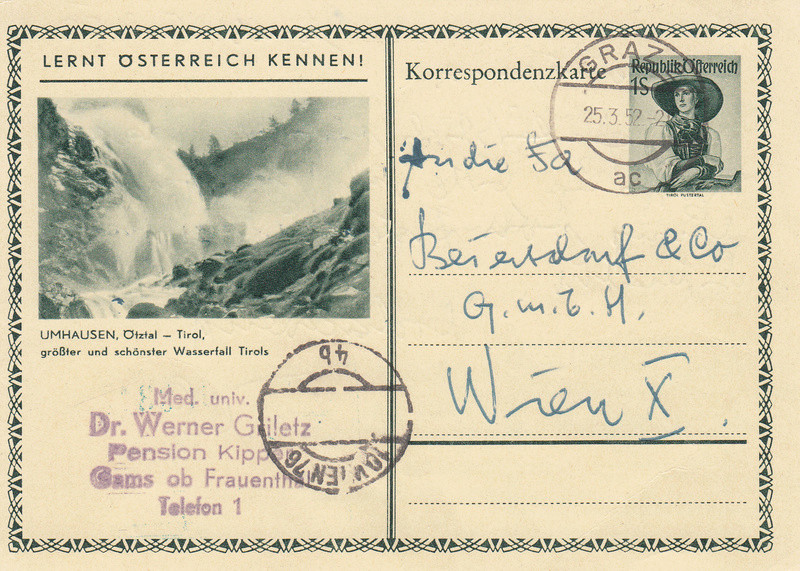 LERNT ÖSTERREICH KENNEN!
UMHAUSEN, Ötztal – Tirol,
größter und schönster Wasserfall Tirols
Med. univ.
Dr. Werner Griletz
Pension Kipper
Gams ob Frauenthal
Telefon 1
4b
WIEN
Korrespondenzkarte
GRAZ
25.3.52
ac
Republik Österreich
1S
TIROL PUSTERTAL
An die Fa
Beiersdorf & Co
G.m.b.H.
Wien X.